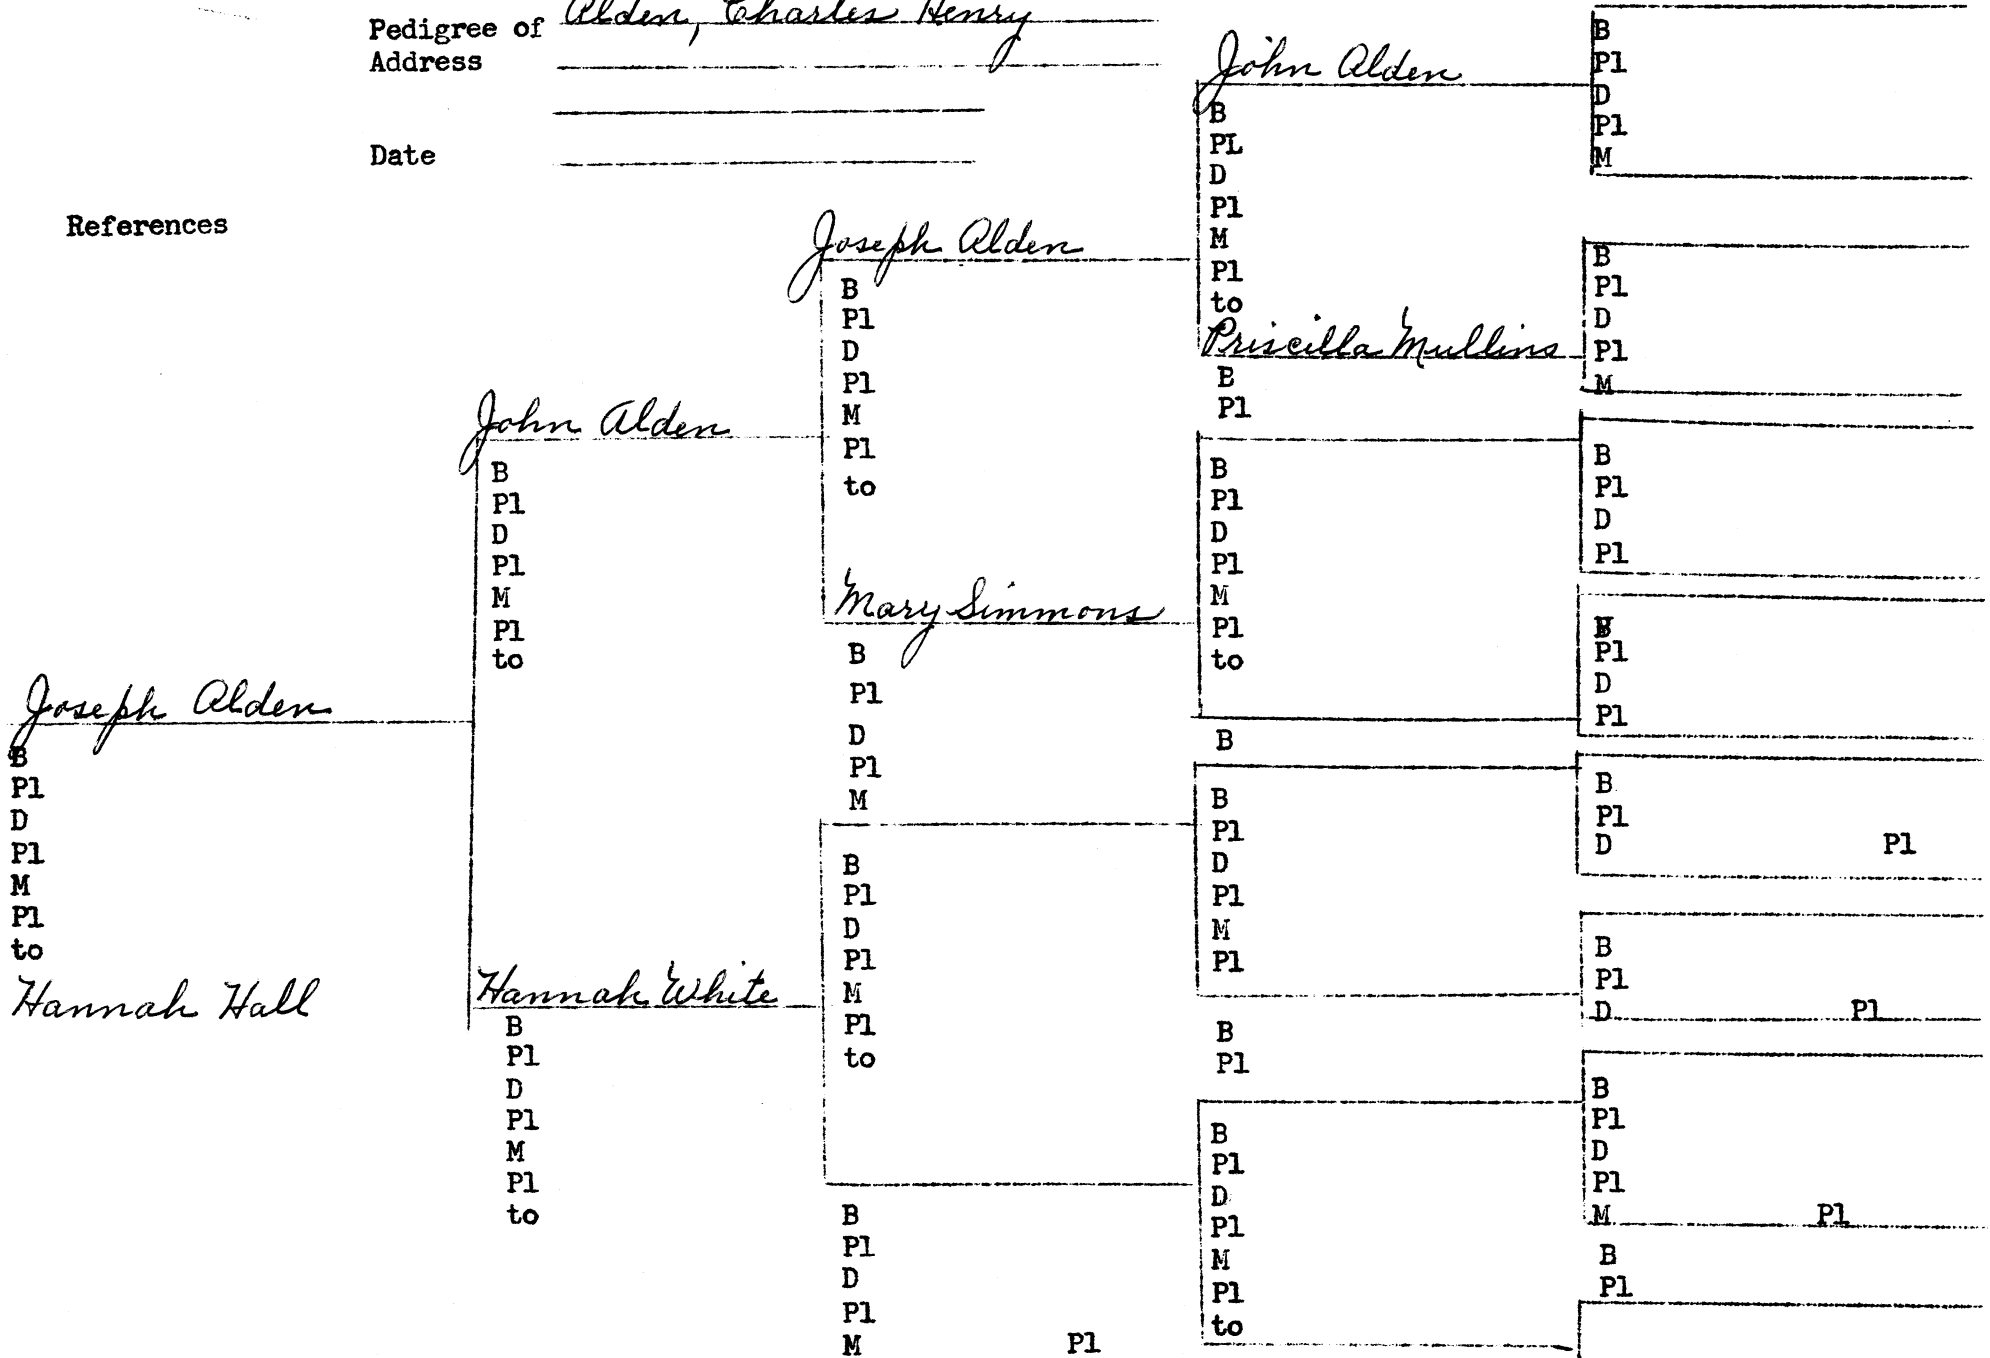 Pedigree of Alden, Charles Henry
Address
Date
References
Joseph Alden
B
Pl
D
Pl
M
Pl
to
Hannah Hall
John Alden
B
Pl
D
Pl
M
Pl
to
Hannah White
B
Pl
D
Pl
M
Pl
to
Joseph Alden
B
Pl
D
Pl
M
Pl
to
Mary Simmons
B
Pl
D
Pl
M
B
Pl
D
Pl
M
Pl
to
B
Pl
D
Pl
M Pl
John Alden
B
PL
D
Pl
M
Pl
to
Priscilla Mullins
B
Pl
B
Pl
D
Pl
M
Pl
to
B
B
Pl
D
Pl
M
Pl
B
Pl
B
Pl
D
Pl
M
Pl
to
B
Pl
D
Pl
M
B
Pl
D
Pl
M
B
Pl
D
Pl
B
Pl
D
Pl
B
Pl
D Pl
B
Pl
D Pl
B
Pl
D
Pl
M Pl
B
Pl